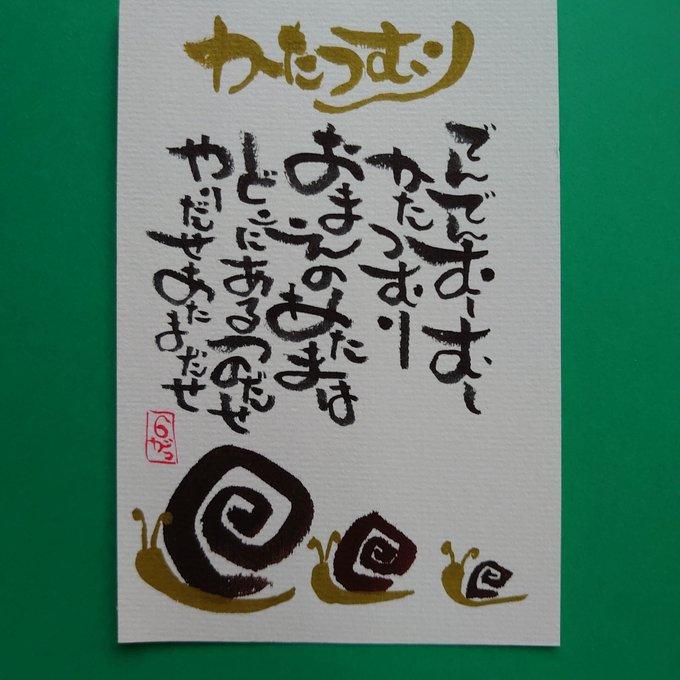 かたつむり
でんでんむーむー
かたつむり
おまえのあたまは
どこにあるつのだせ
やりだせあたまだせ
6がつ